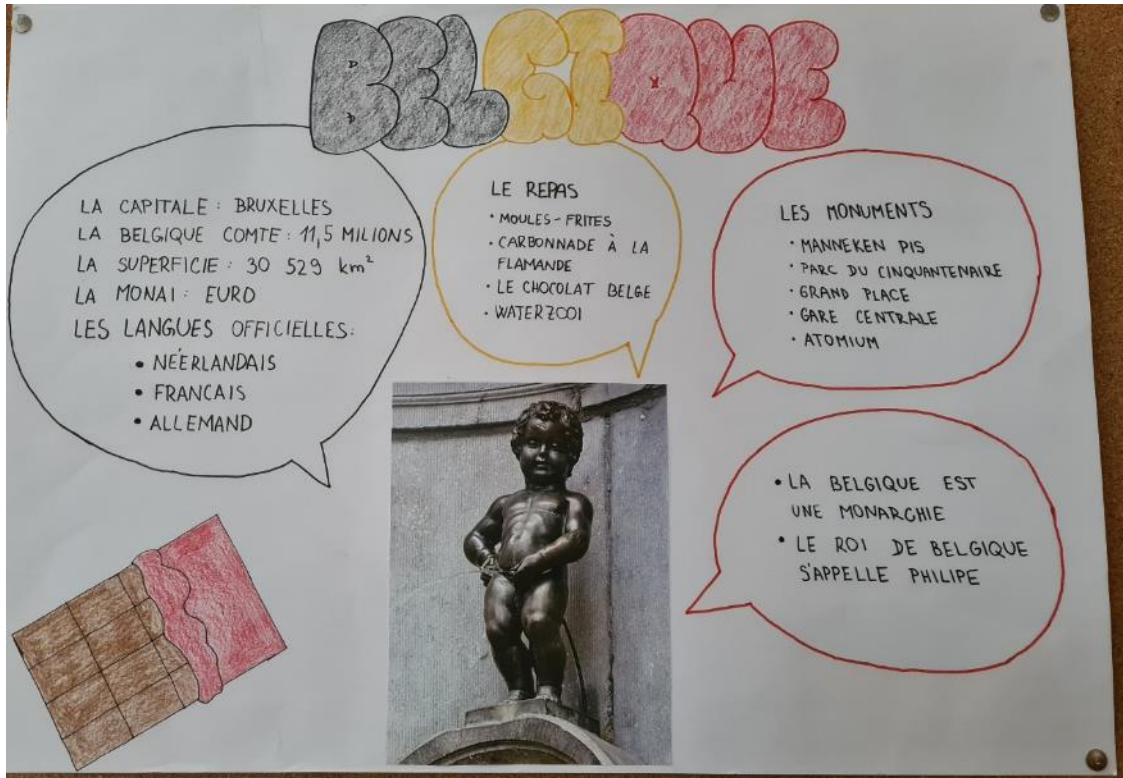 BELGIQUE
LA CAPITALE: BRUXELLES
LA BELGIQUE COMTE: 11,5 MILIONS
LA SUPERFICIE: 30 529 km²
LA MONAI: EURO
LES LANGUES OFFICIELLES:
• NÉERLANDAIS
• FRANCAIS
• ALLEMAND
LE REPAS
• MOULES-FRITES
• CARBONNADE À LA
FLAMANDE
• LE CHOCOLAT BELGE
• WATERZOOI
LES MONUMENTS
• MANNEKEN PIS
• PARC DU CINQUANTENAIRE
• GRAND PLACE
• GARE CENTRALE
• ATOMIUM
• LA BELGIQUE EST
UNE MONARCHIE
• LE ROI DE BELGIQUE
S'APPELLE PHILIPE